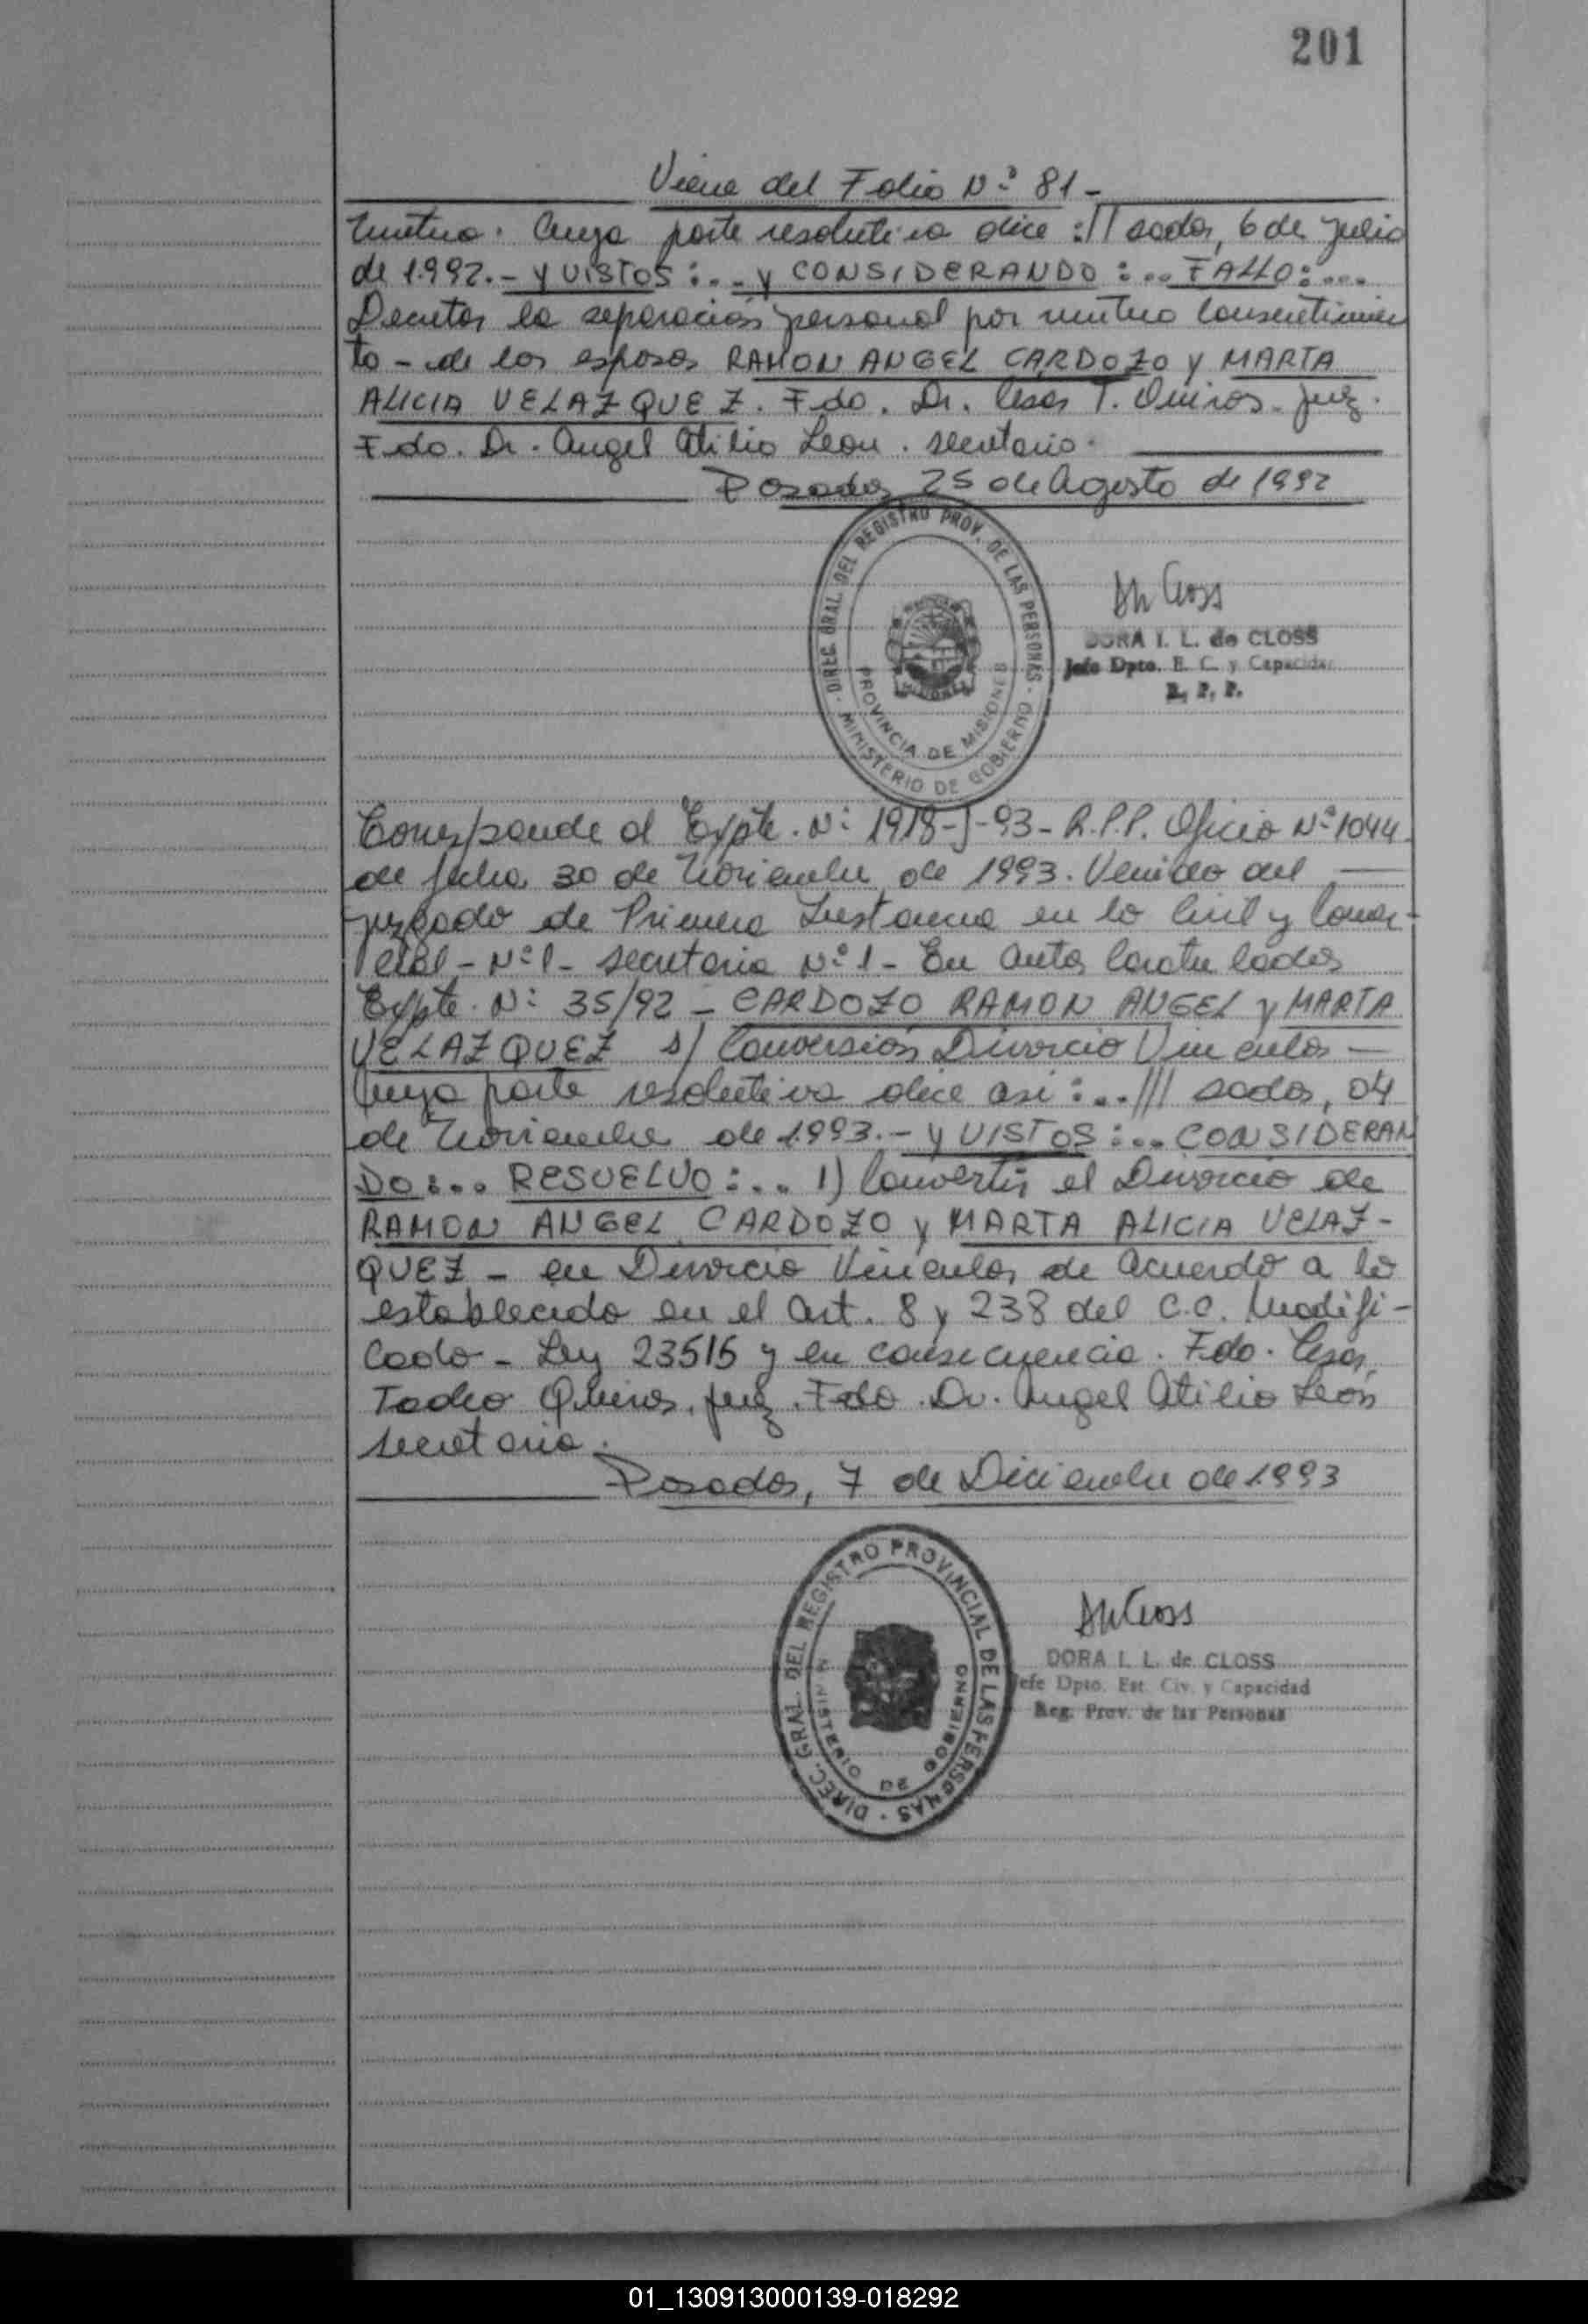 201
Viene del Folio Nº 81-
Mutuo. Cuya parte resolutiva dice :// sadas, 6 de Julio
de 1.992.- Y VISTOS:... y CONSIDERANDO:... FALLO:...
Decretar la separación personal por mutuo Consentimien
to - de los esposos RAMON ANGEL CARDOZO y MARTA
ALICIA VELAZQUEZ. Fdo. Dr. Cesar T. Quiros. Juez.
Fdo. Dr. Angel Atilio Leon. secretario.
Posadas 25 de Agosto de 1992
DIREC. GRAL. DEL REGISTRO PROV. DE LAS PERSONAS - MINISTERIO DE GOBIERNO
PROVINCIA DE MISIONES
DORA I. L. de CLOSS
Jefe Dpto. E. C. y Capacidad
R. P. P.
Corresponde al Expte. Nº 1918-J-93- R.P.P. Oficio Nº 1044
de fecha 30 de Noviembre de 1993. Venido del
juzgado de Primera Instancia en lo Civil y Comer-
cial - Nº 1 - secretaria Nº 1 - En autos Caratulados
Expte. Nº 35/92 - CARDOZO RAMON ANGEL y MARTA
VELAZQUEZ s/ Conversión Divorcio Vincular -
Cuya parte resolutiva dice asi:.../// sadas, 04
de Noviembre de 1.993.- Y VISTOS:... CONSIDERAN
DO:... RESUELVO:... 1) Convertir el Divorcio de
RAMON ANGEL CARDOZO y MARTA ALICIA VELAZ-
QUEZ - en Divorcio Vincular de acuerdo a lo
establecido en el art. 8 y 238 del C.C. Modifi-
cado - Ley 23515 y en consecuencia. Fdo. Cesar
Tadeo Quiros. juez. Fdo. Dr. Angel Atilio León
secretario.
Posadas, 7 de Diciembre de 1993
DIREC. GRAL. DEL REGISTRO PROVINCIAL DE LAS PERSONAS
MINISTERIO DE GOBIERNO
DORA I. L. de CLOSS
Jefe Dpto. Est. Civ. y Capacidad
Reg. Prov. de las Personas
01_130913000139-018292